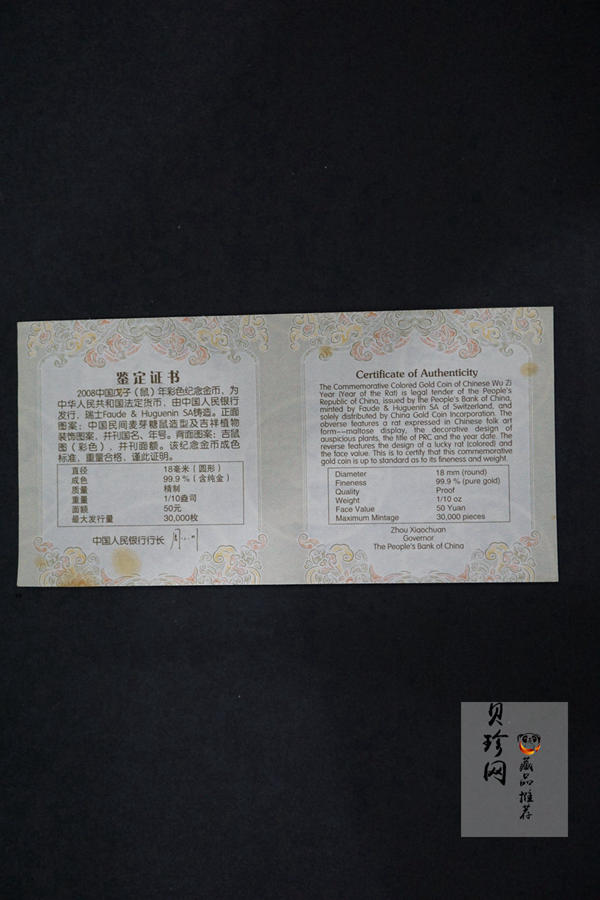 鉴定证书
2008中国戊子（鼠）年彩色纪念金币，为
中华人民共和国法定货币，由中国人民银行
发行，瑞士Faude & Huguenin SA铸造。正面
图案：中国民间麦芽糖鼠造型及吉祥植物
装饰图案，并刊国名、年号。背面图案：吉鼠
图（彩色），并刊面额。该纪念金币成色
标准，重量合格，谨此证明。
直径 18毫米（圆形）
成色 99.9％（含纯金）
质量 精制
重量 1/10盎司
面额 50元
最大发行量 30,000枚
中国人民银行行长
Certificate of Authenticity
The Commemorative Colored Gold Coin of Chinese Wu Zi
Year (Year of the Rat) is legal tender of the People's
Republic of China, issued by the People's Bank of China,
minted by Faude & Huguenin SA of Switzerland, and
solely distributed by China Gold Coin Incorporation. The
obverse features a rat expressed in Chinese folk art
form---maltose display, the decorative design of
auspicious plants, the title of PRC and the year date. The
reverse features the design of a lucky rat (colored) and
the face value. This is to certify that this commemorative
gold coin is up to standard as to its fineness and weight.
Diameter 18 mm (round)
Fineness 99.9 % (pure gold)
Quality Proof
Weight 1/10 oz
Face Value 50 Yuan
Maximum Mintage 30,000 pieces
Zhou Xiaochuan
Governor
The People's Bank of China
贝珍网
藏品推荐